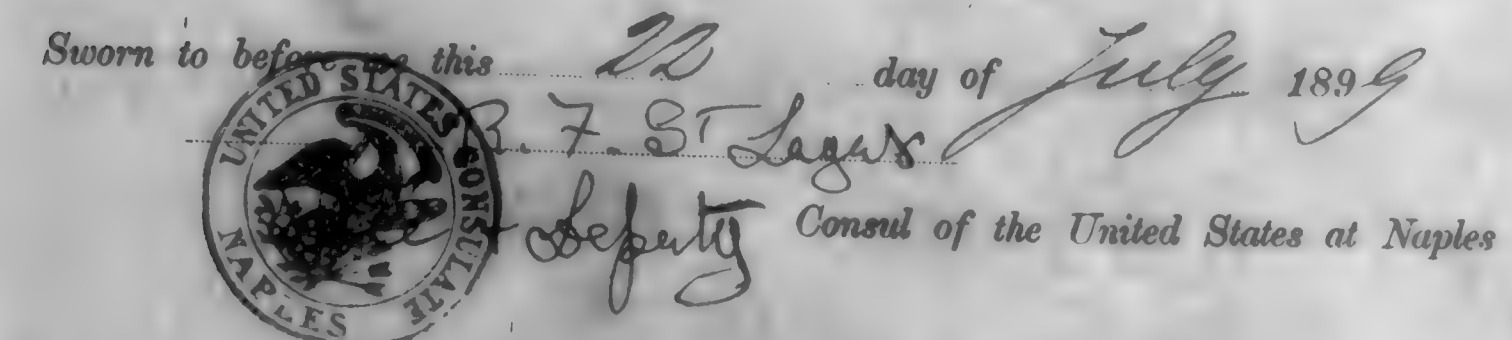 Sworn to before me this 22 day of July 1899
R. F. St Leger
Deputy Consul of the United States at Naples
UNITED STATES CONSULATE
NAPLES